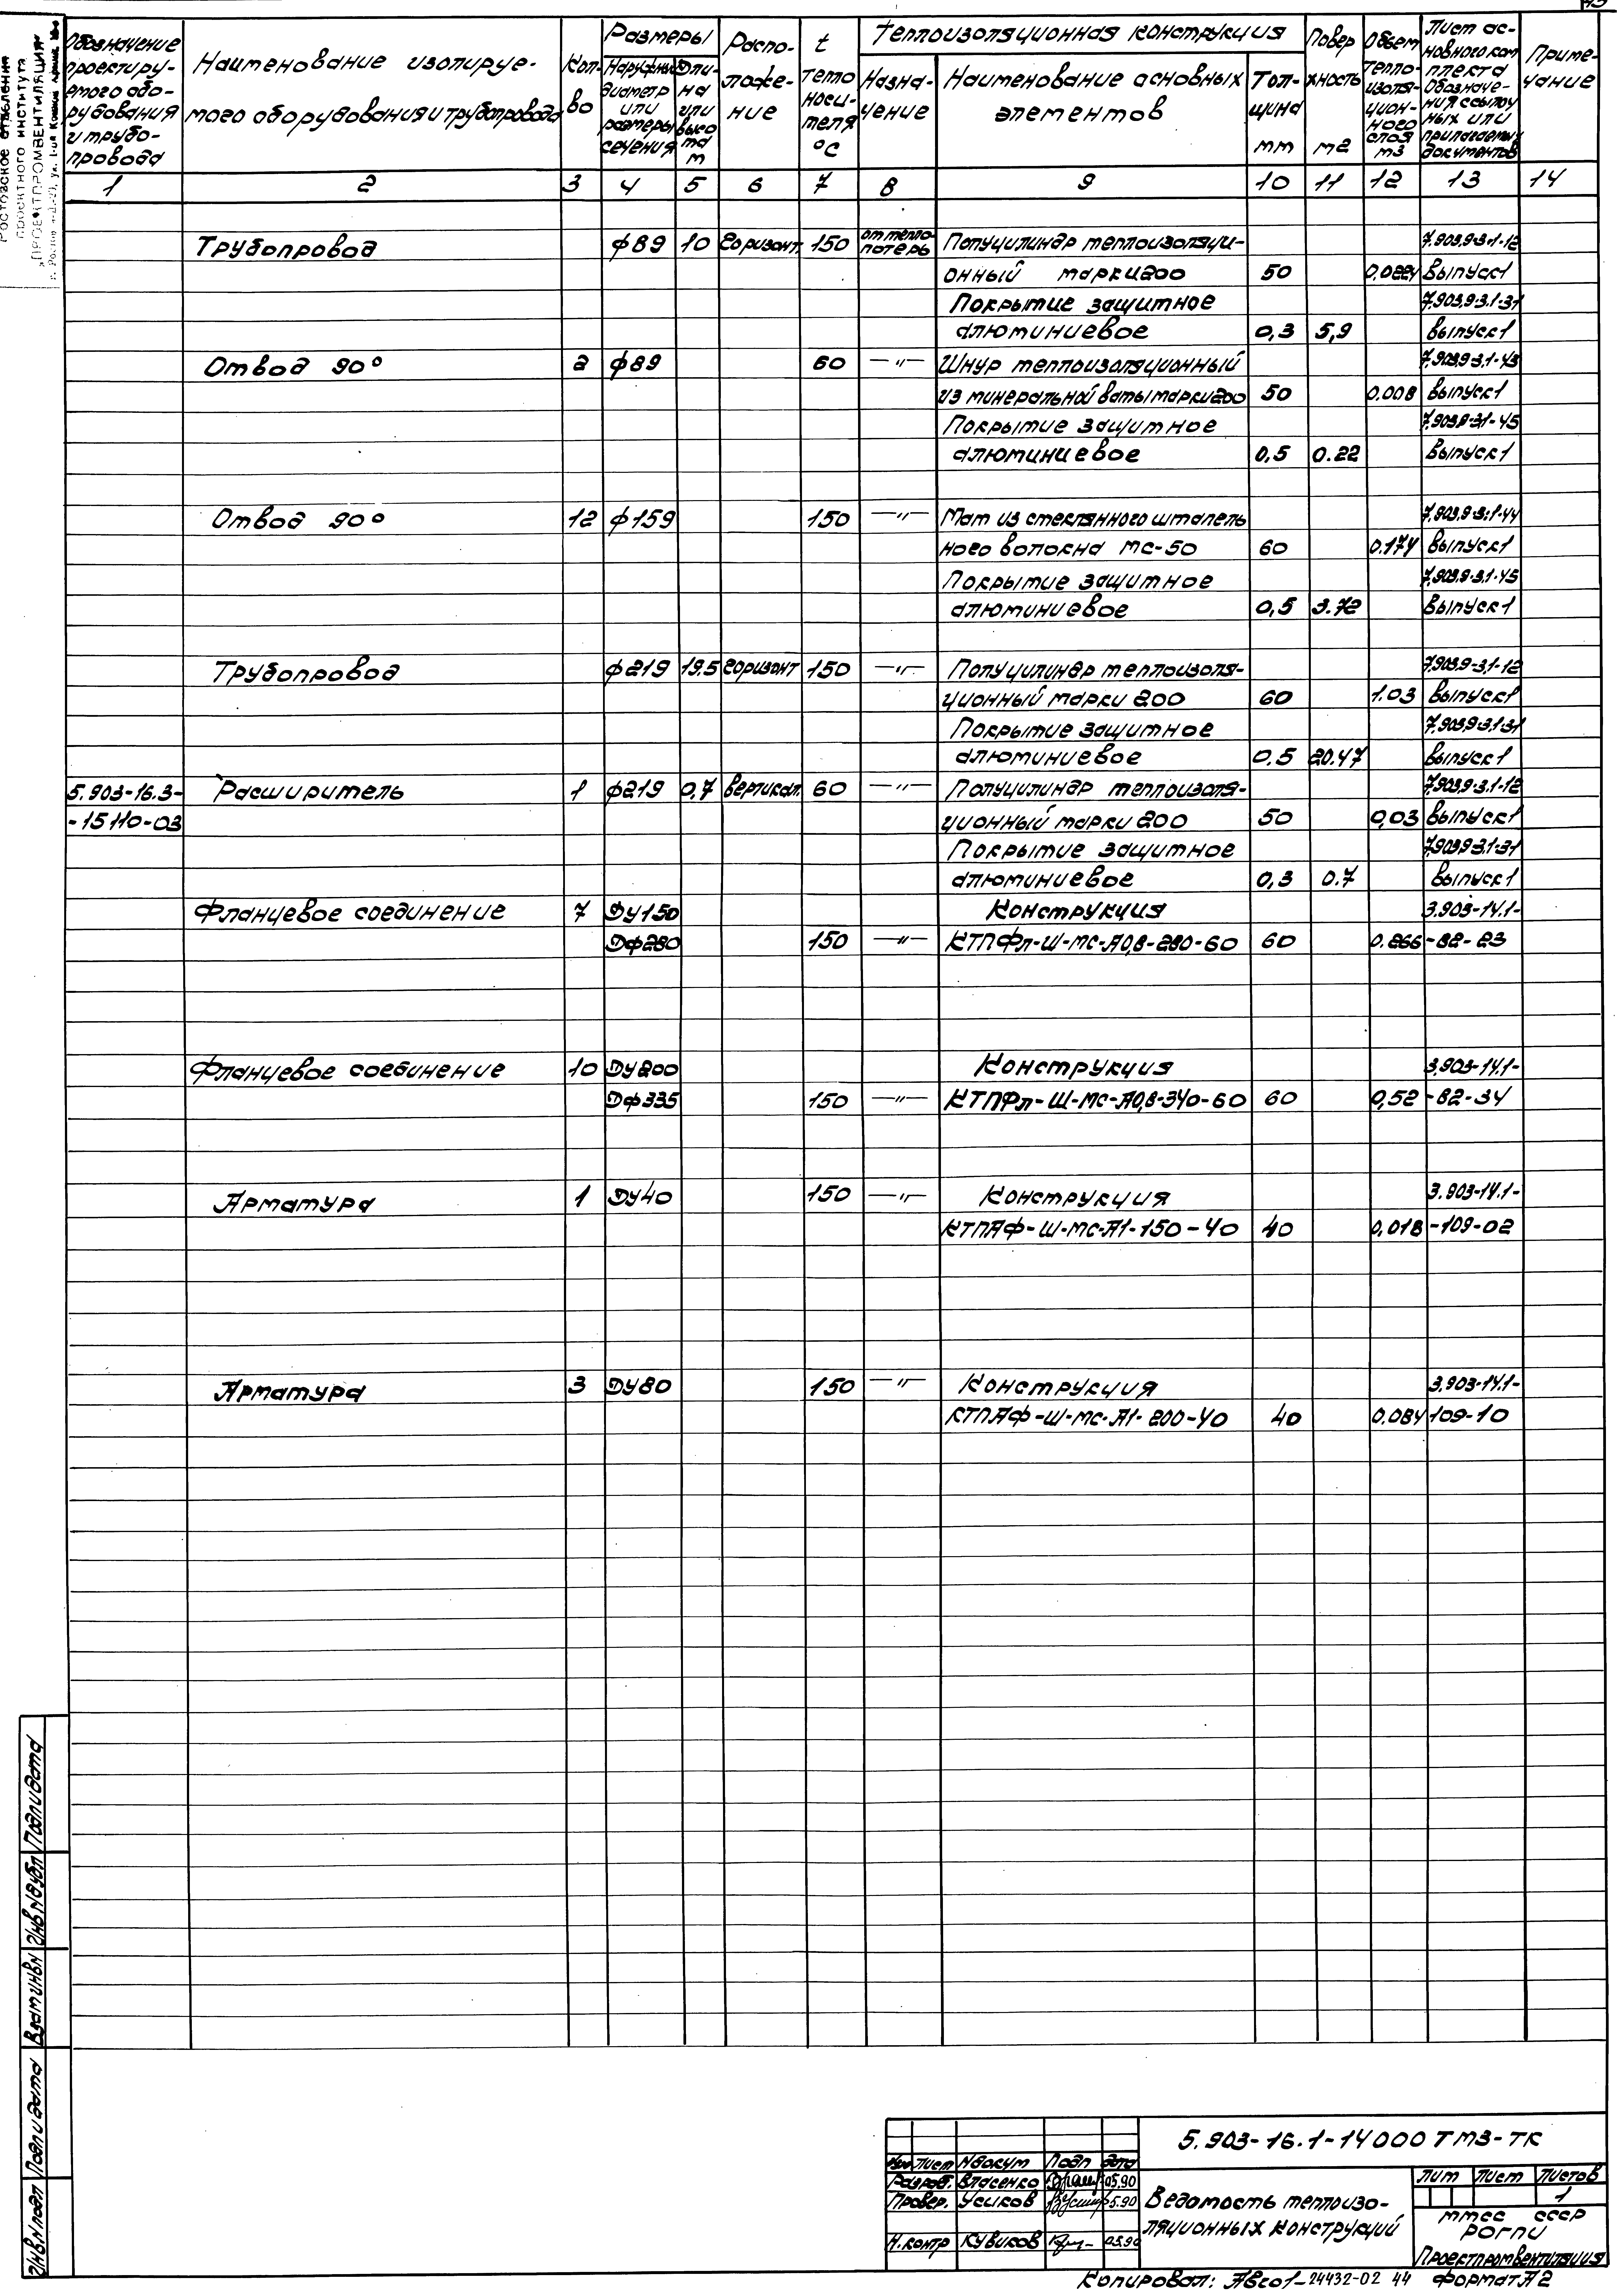 Обозначение проектируемого оборудования и трубопровода
Наименование изолируемого оборудования и трубопровода
Кол-во
Размеры
Наружный диаметр или размеры сечения
Длина или высота м
Расположение
t теплоносителя °С
Теплоизоляционная конструкция
Назначение
Наименование основных элементов
Толщина мм
Поверхность м2
Объем теплоизоляционного слоя м3
Лист основного комплекта Обозначения ссылочных или прилагаемых документов
Примечание
1 2 3 4 5 6 7 8 9 10 11 12 13 14
Трубопровод ф89 10 Горизонт. 150 от тепло- Полуцилиндр теплоизоляци- 7.903.9-3.1-12
потерь
онный марки 200 50 выпуск1
Покрытие защитное 7.903.9-3.1-31
алюминиевое 0,3 5,9 выпуск1
Отвод 90° 2 ф89 60 —"— Шнур теплоизоляционный 7.903.9-3.1-43
из минеральной ваты марки 200 50 0.008 выпуск1
Покрытие защитное 7.903.9-3.1-45
алюминиевое 0,5 0.22 выпуск1
Отвод 90° 12 ф159 150 —"— Мат из стеклянного штапель 7.903.9-3.1-44
ного волокна МС-50 60 0.174 выпуск1
Покрытие защитное 7.903.9-3.1-45
алюминиевое 0,5 3.72 выпуск1
Трубопровод ф219 19.5 Горизонт 150 —"— Полуцилиндр теплоизоля- 7.903.9-3.1-12
ционный марки 200 60 1.03 выпуск1
Покрытие защитное 7.903.9-3.1-31
алюминиевое 0.5 20.47 выпуск1
5.903-16.3- Расширитель 1 ф219 0,7 вертикал. 60 —"— Полуцилиндр теплоизоля- 7.903.9-3.1-12
-15110-03 ционный марки 200 50 0,03 выпуск1
Покрытие защитное 7.903.9-3.1-31
алюминиевое 0,3 0.7 выпуск1
Фланцевое соединение 7 Dу150 Конструкция 3.903-14.1-
Dф280 150 —"— КТПФл-Ш-МС-А0,8-280-60 60 0.266 -82-23
Фланцевое соединение 10 Dу200 Конструкция 3.903-14.1-
Dф335 150 —"— КТПФл-Ш-МС-А0,8-340-60 60 0,52 -82-34
Арматура 1 Dу40 150 —"— Конструкция 3.903-14.1-
КТПАф-Ш-МС-А1-150-40 40 0,018 -109-02
Арматура 3 Dу80 150 —"— Конструкция 3.903-14.1-
КТПАф-Ш-МС-А1-200-40 40 0.084 109-10
Ростовское отделение
проектного института
"ПРОЕКТПРОМВЕНТИЛЯЦИЯ"
Подп и дата
Инв N дубл
Взам инв N
Подп и дата
Инв N подл
5.903-16.1-14000 ТМ3-ТК
Изм Лист N докум Подп Дата
Разраб. Власенко 05.90
Провер. Усиков 5.90
Н.контр Кувиков 05.90
Ведомость теплоизо-
ляционных конструкций
Лит Лист Листов
1
ММСС СССР
РОГПИ
Проектпромвентиляция
Копировал: 24432-02 44 Формат А2